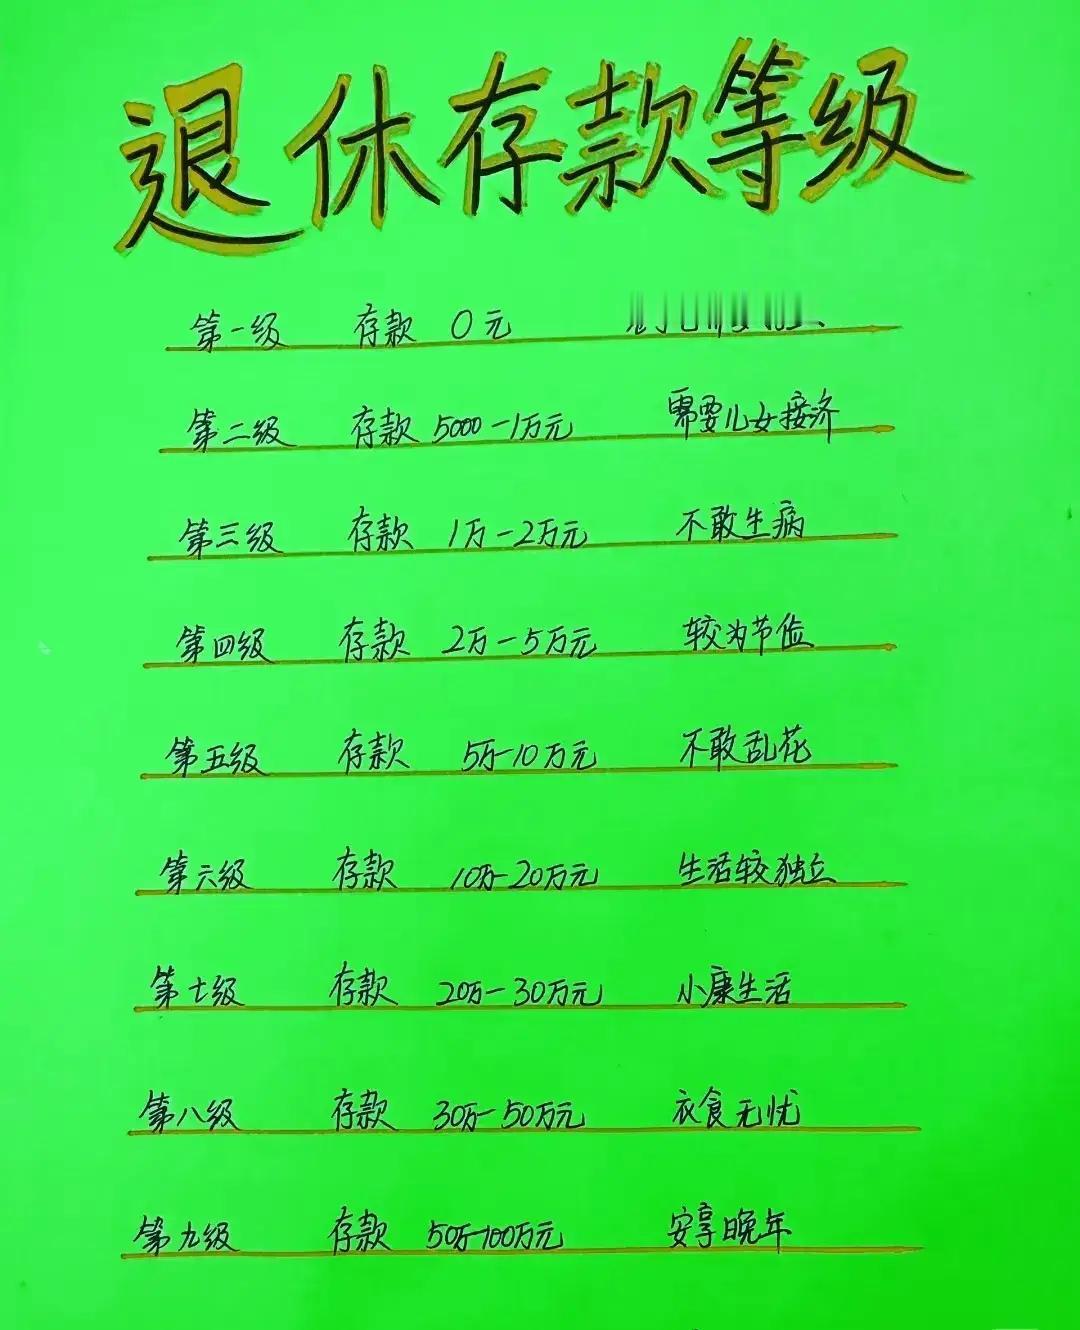 退休存款等级
第一级 存款 0元
第二级 存款 5000-1万元 需要儿女接济
第三级 存款 1万-2万元 不敢生病
第四级 存款 2万-5万元 较为节俭
第五级 存款 5万-10万元 不敢乱花
第六级 存款 10万-20万元 生活较独立
第七级 存款 20万-30万元 小康生活
第八级 存款 30万-50万元 衣食无忧
第九级 存款 50万-100万元 安享晚年